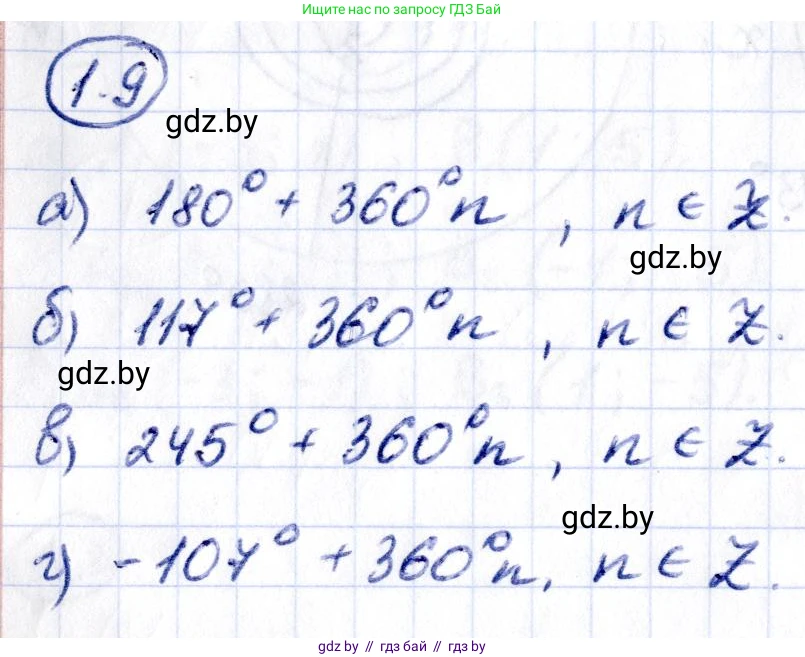 Ищите нас по запросу ГДЗ Бай
1.9
gdz.by
а) 180° + 360°n , n ∈ Z.
gdz.by
б) 117° + 360°n , n ∈ Z.
gdz.by
в) 245° + 360°n , n ∈ Z.
gdz.by
г) -107° + 360°n, n ∈ Z.
gdz.by // гдз бай // гдз by